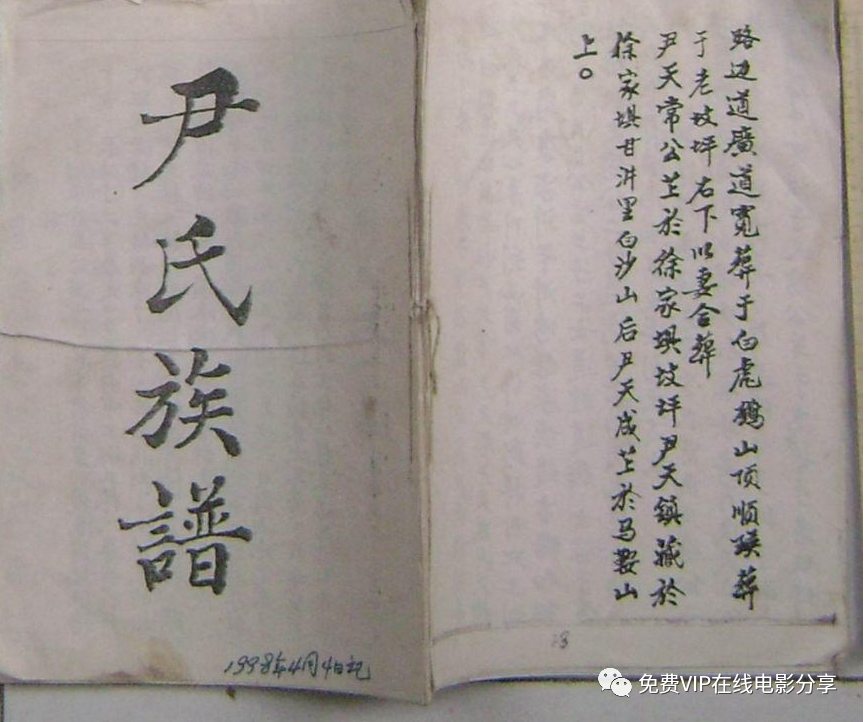 尹氏族譜
1998年4月4日记
路边道廣道寬葬于白虎鹅山顶顺瑛葬
于老坟坪右下以妻合葬
尹天常公芷於徐家埧坟坪尹天鎮藏於
徐家埧甘洴里白沙山后尹天成芷於马鞍山
上。
13
免费VIP在线电影分享